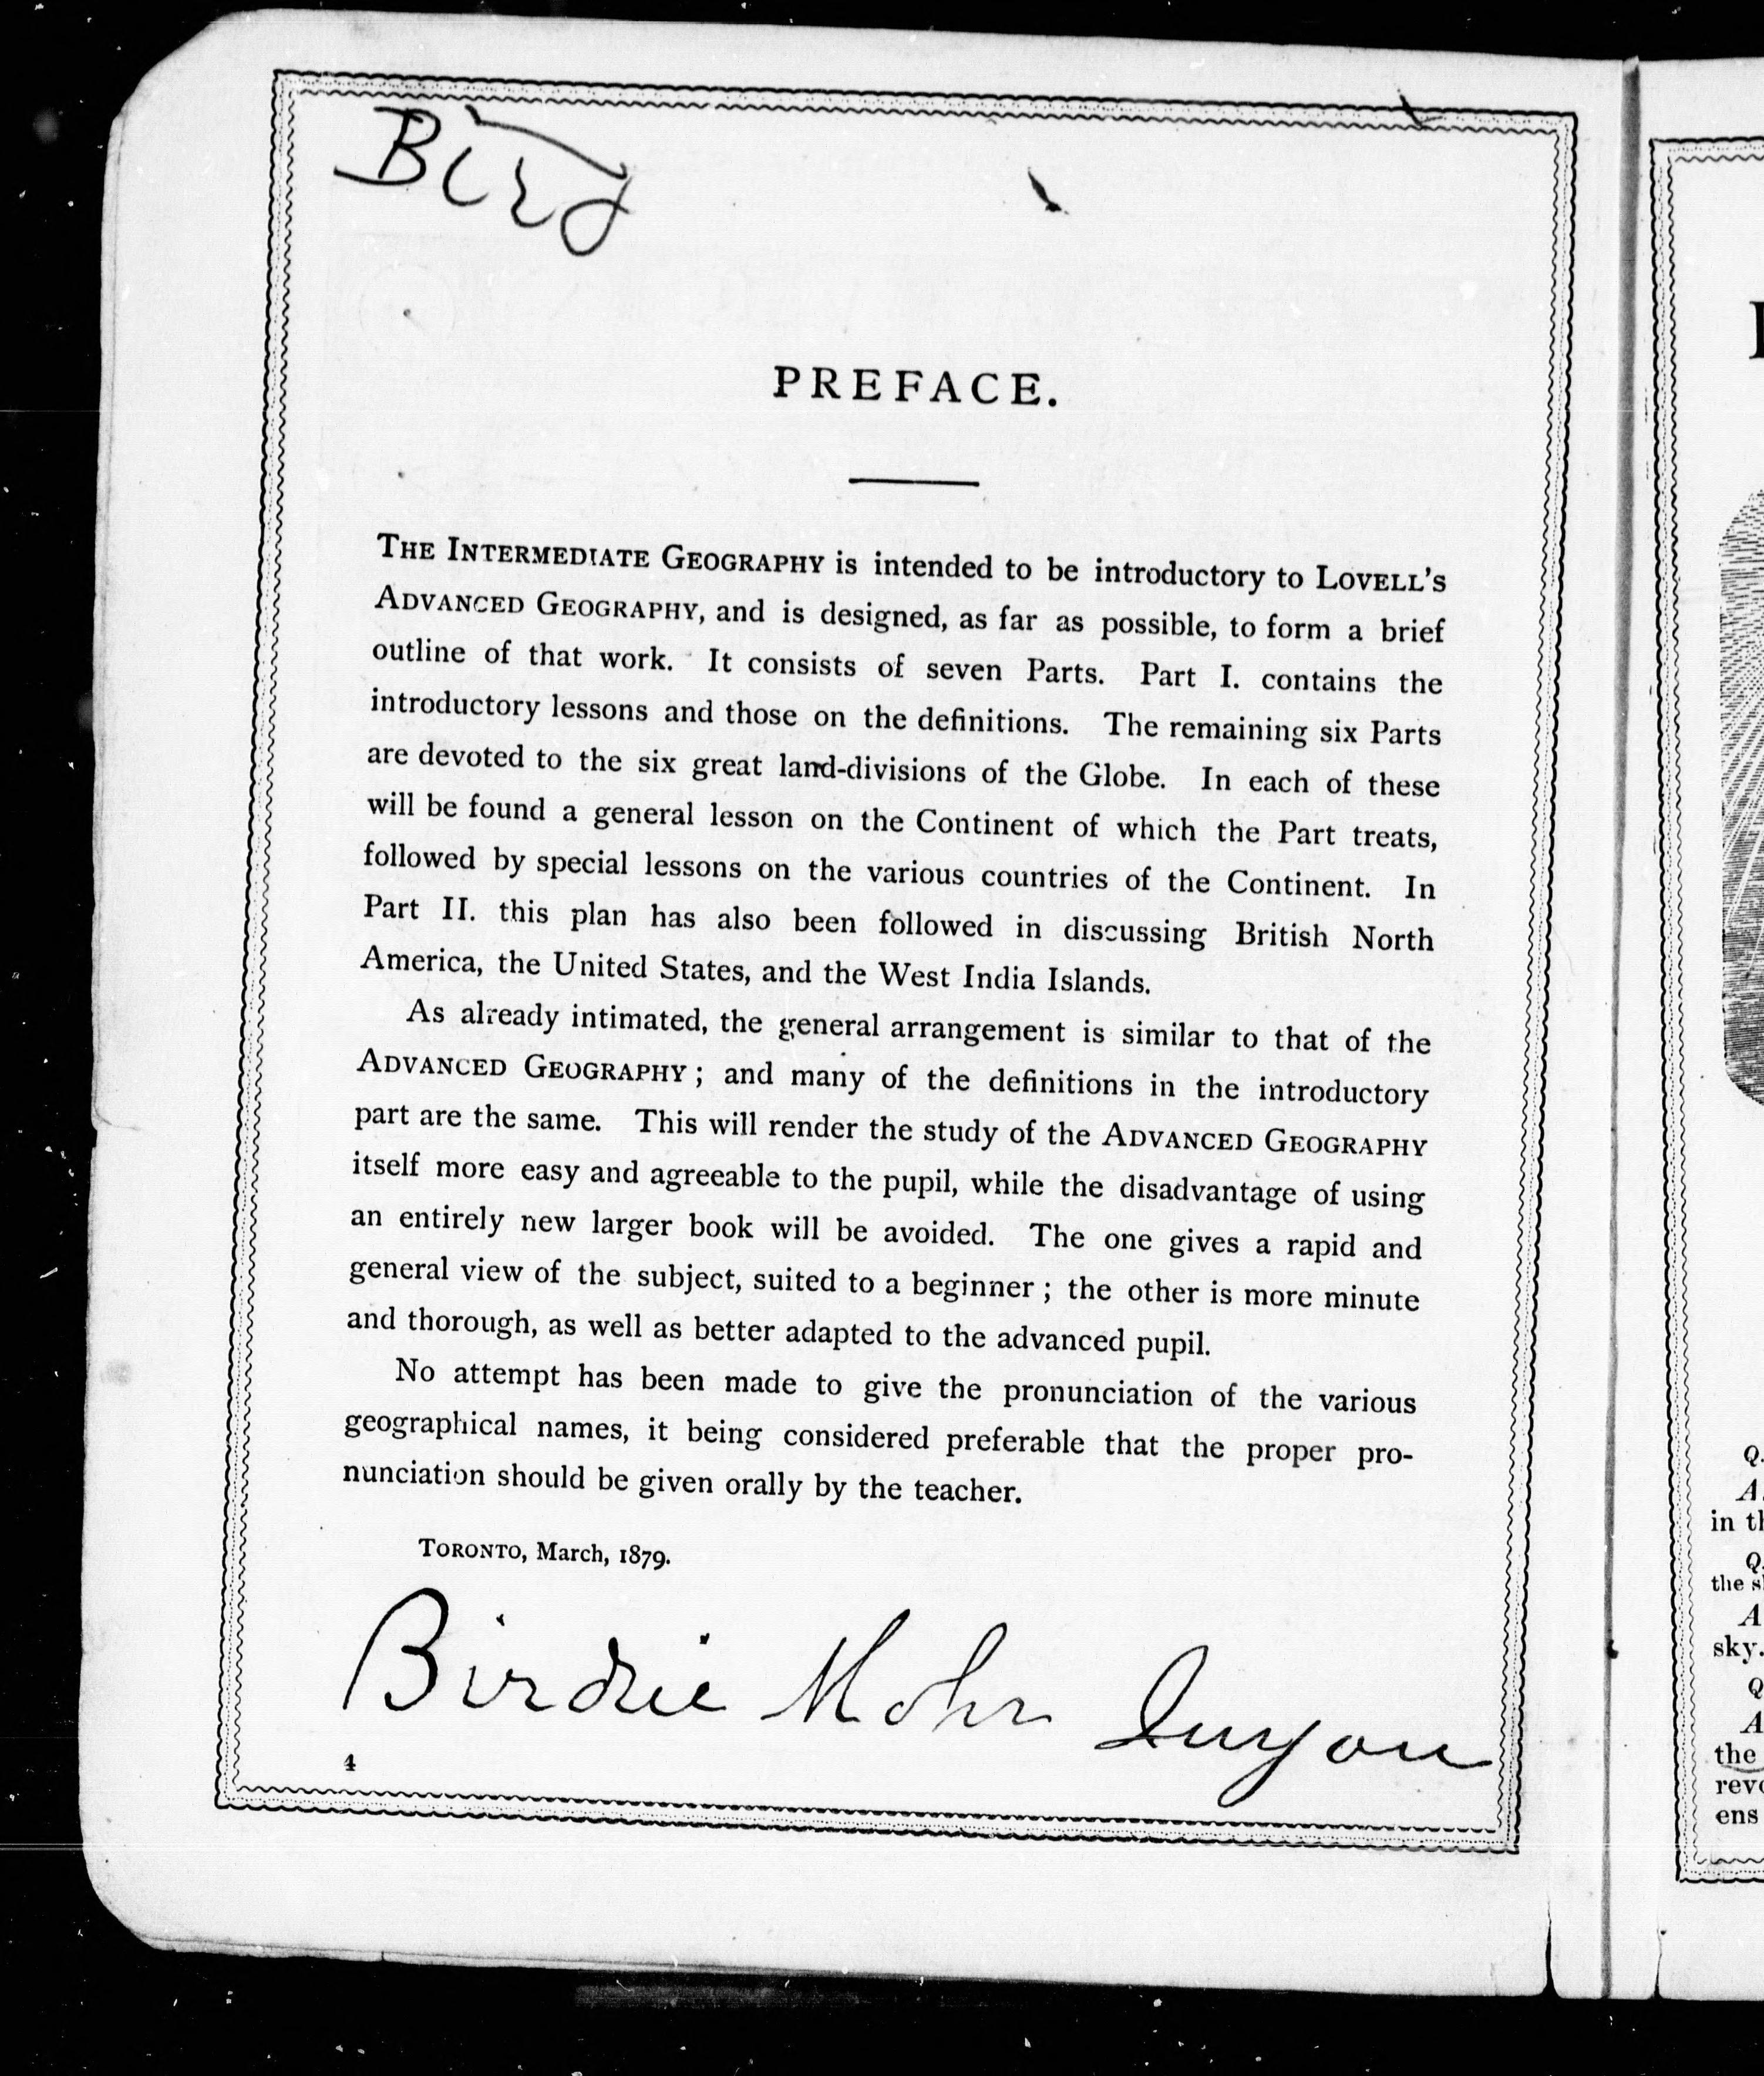 Bird
PREFACE.
THE INTERMEDIATE GEOGRAPHY is intended to be introductory to LOVELL'S
ADVANCED GEOGRAPHY, and is designed, as far as possible, to form a brief
outline of that work. It consists of seven Parts. Part I. contains the
introductory lessons and those on the definitions. The remaining six Parts
are devoted to the six great land-divisions of the Globe. In each of these
will be found a general lesson on the Continent of which the Part treats,
followed by special lessons on the various countries of the Continent. In
Part II. this plan has also been followed in discussing British North
America, the United States, and the West India Islands.
As already intimated, the general arrangement is similar to that of the
ADVANCED GEOGRAPHY; and many of the definitions in the introductory
part are the same. This will render the study of the ADVANCED GEOGRAPHY
itself more easy and agreeable to the pupil, while the disadvantage of using
an entirely new larger book will be avoided. The one gives a rapid and
general view of the subject, suited to a beginner; the other is more minute
and thorough, as well as better adapted to the advanced pupil.
No attempt has been made to give the pronunciation of the various
geographical names, it being considered preferable that the proper pro-
nunciation should be given orally by the teacher.
TORONTO, March, 1879.
Birdie Mohr
4
Q.
A.
in th
Q.
the s
A
sky.
Q
A
the
revo
ens